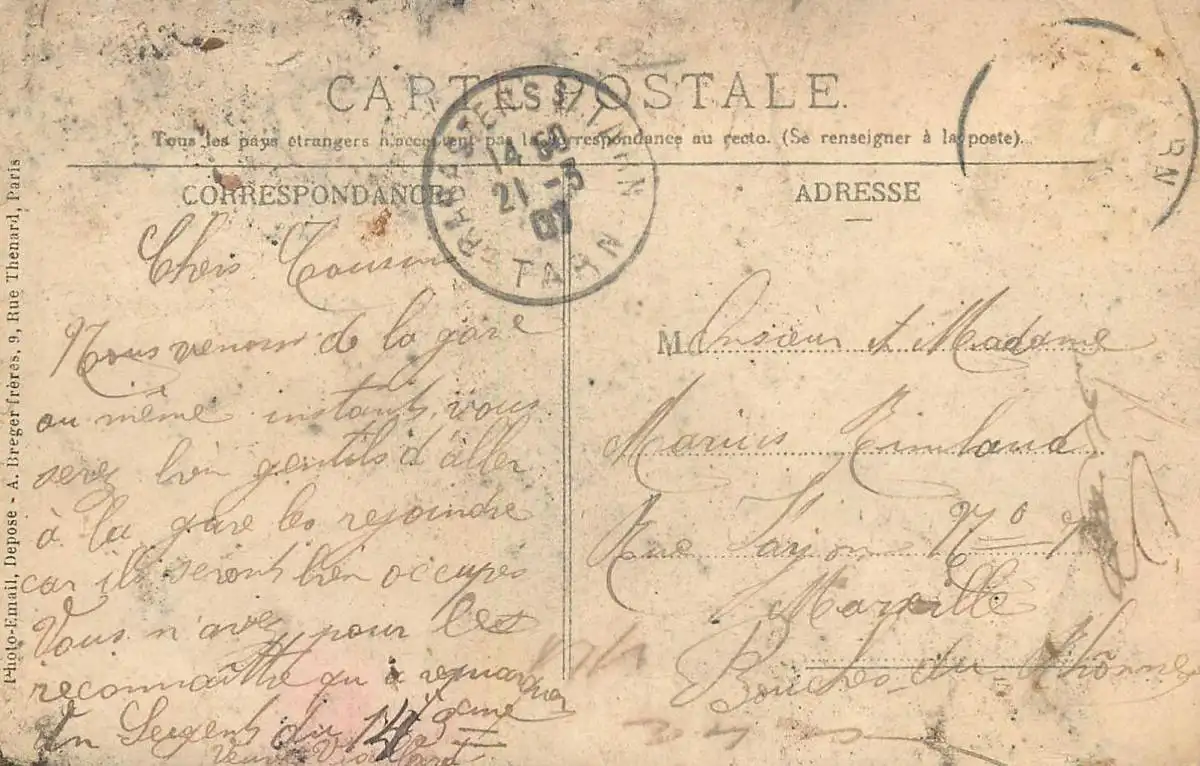 CARTE POSTALE.
Tous les pays étrangers n'acceptent pas la correspondance au recto. (Se renseigner à la poste).
CORRESPONDANCE
Chers Cousin
Nous venons de la gare
au même instant, vous
serez bien gentils d'aller
à la gare les rejoindre
car ils seront bien occupés
Vous n'avez pour les
reconnaître qu'à remarquer
Un Sergent du 143eme
Veuve
ADRESSE
Monsieur et Madame
Marius
Rue No 7
Marseille
Bouches du Rhônne
14 50
21 -3
TARN
RN
Photo-Email, Déposé - A. Breger frères, 9, Rue Thenard, Paris